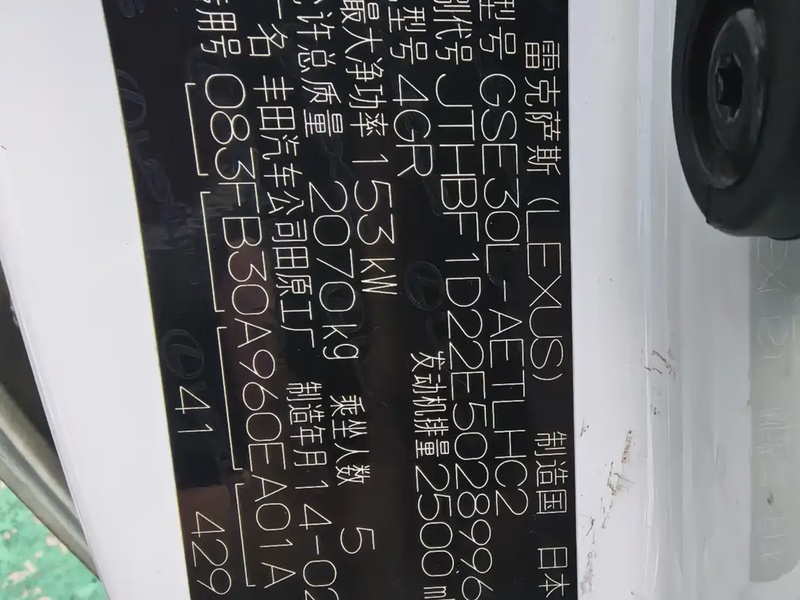 雷克萨斯 (LEXUS) 制造国 日本
型号 GSE30L-AETLHC2
别代号 JTHBF1D22E5028996
型号 4GR 发动机排量 2500ml
最大净功率 153kW
允许总质量 2070kg 乘坐人数 5
厂名 丰田汽车公司田原工厂 制造年月 14-02
专用号 083FB30A960EA01A
41 429